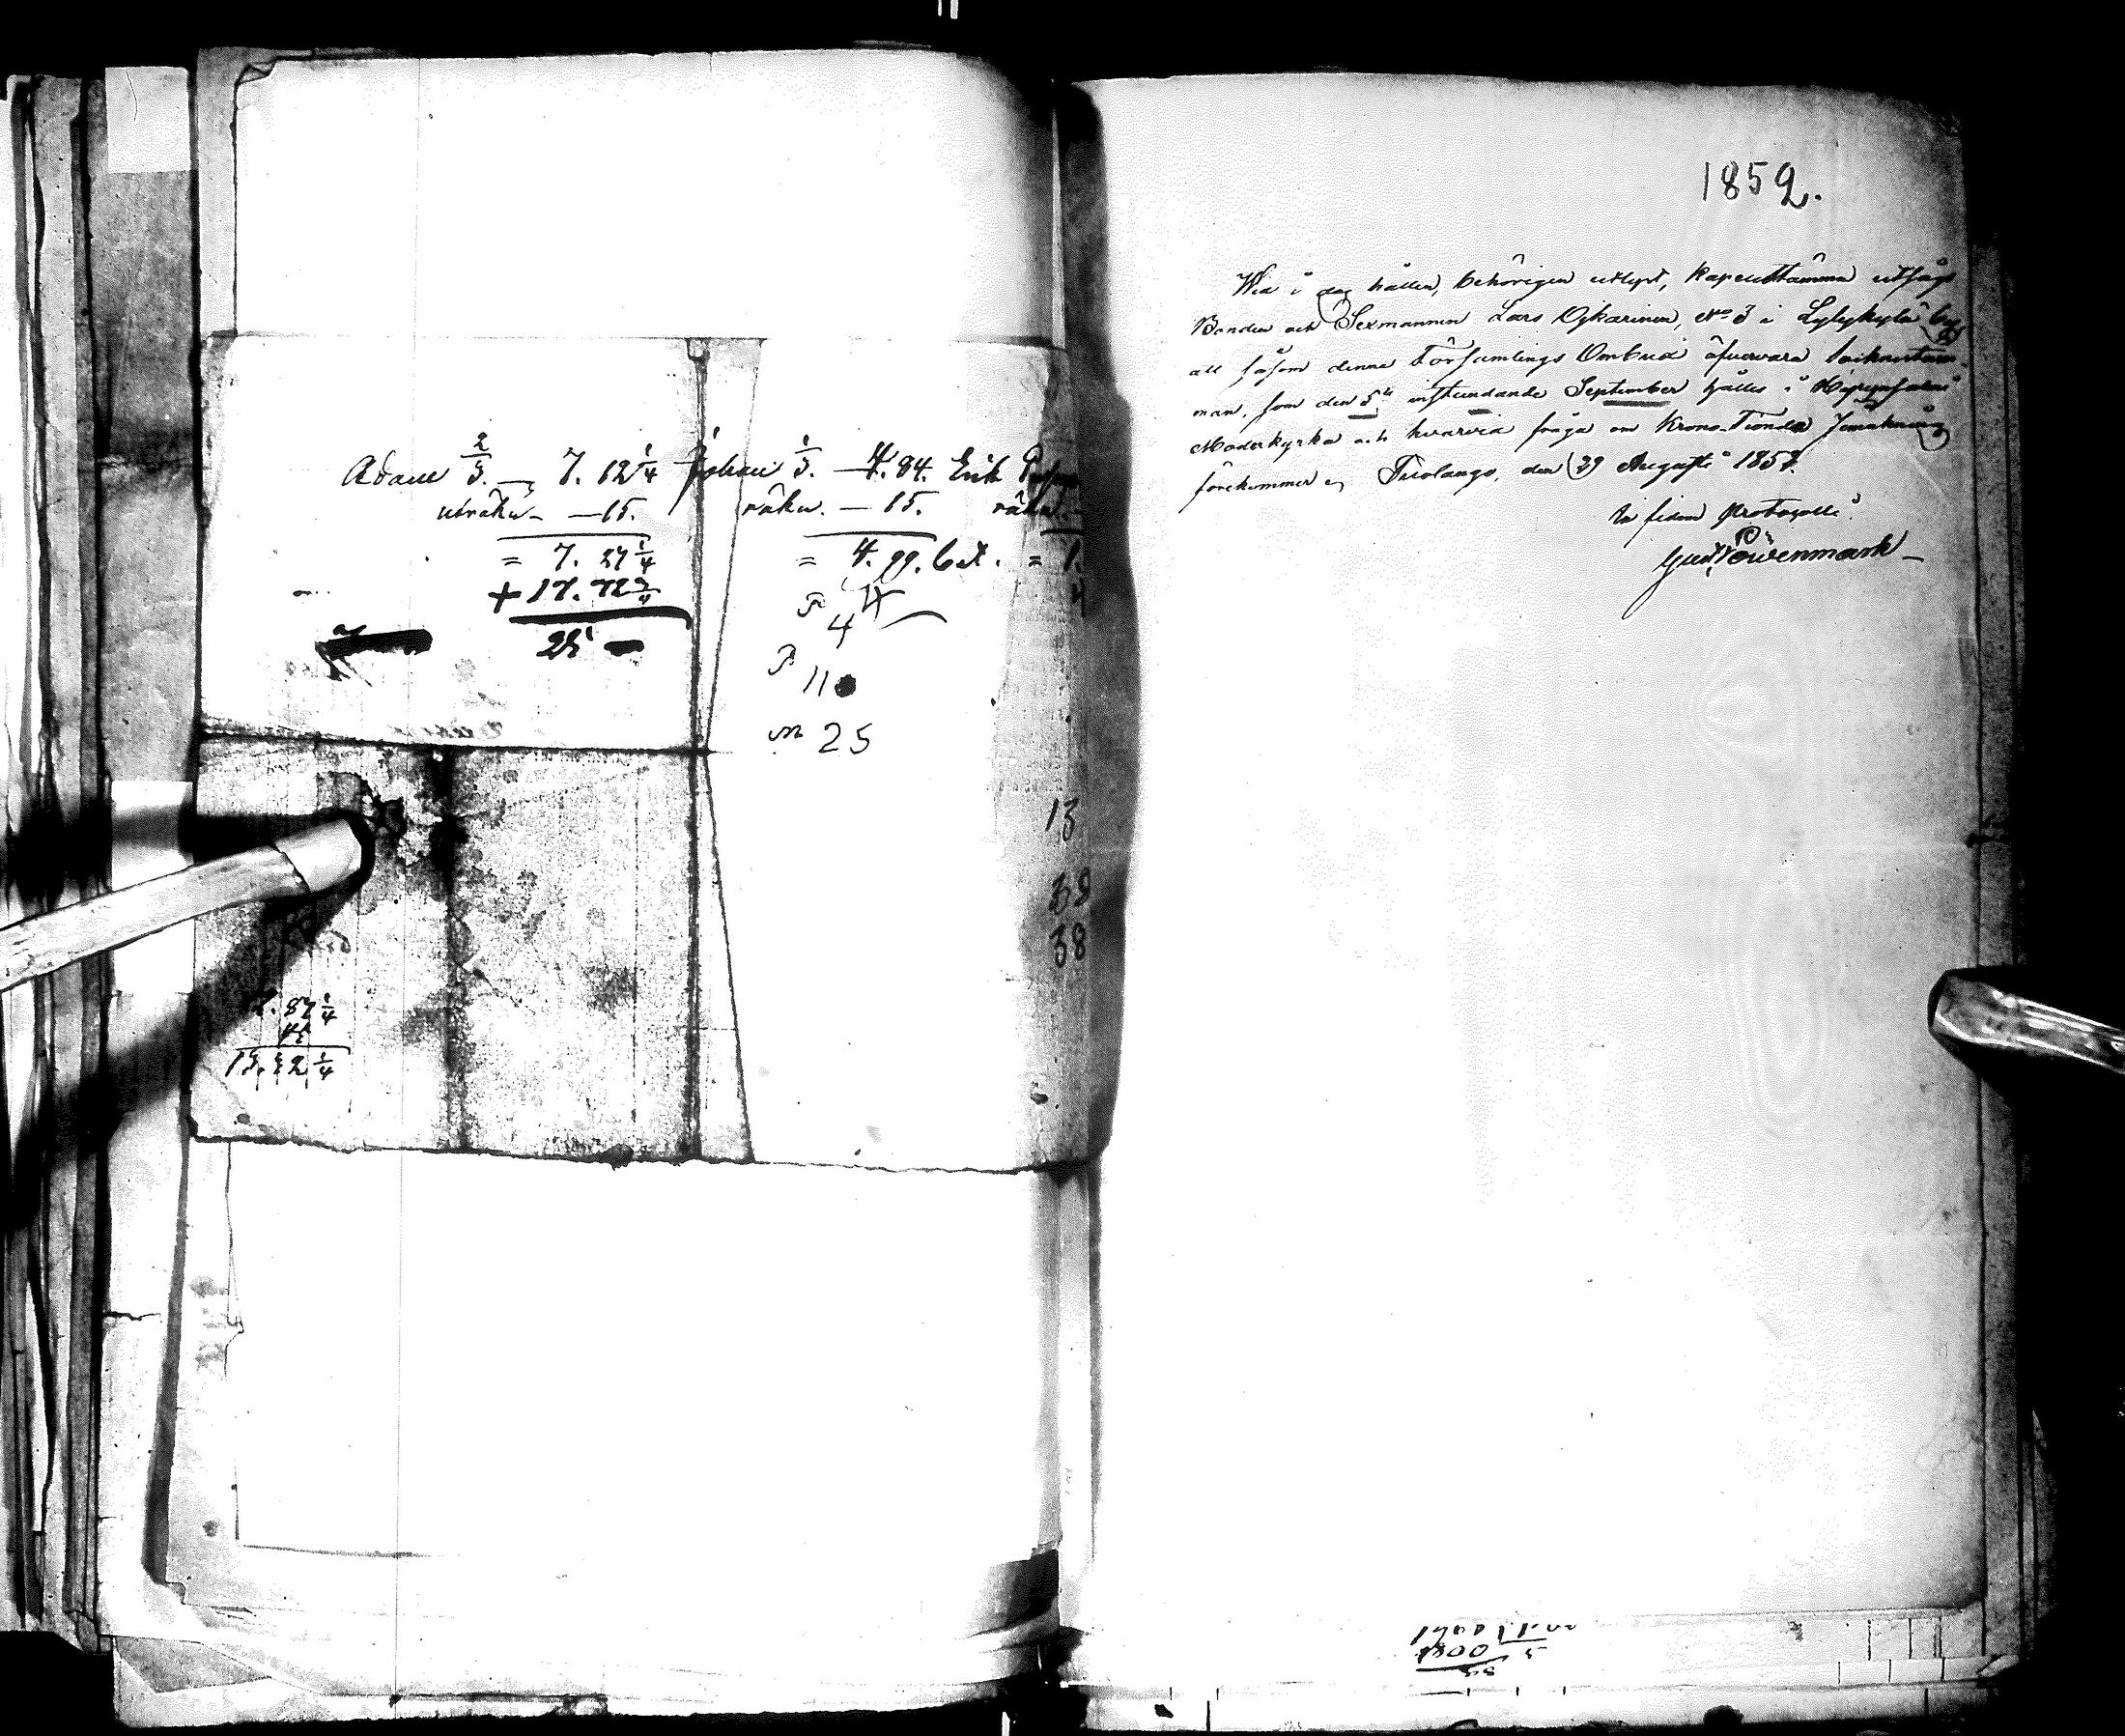 Adam 2/3. — 7. 12 1/4 Johan 1/3. — 4. 84. Erik
uträkn — 15. räkn. — 15. räkn. —
= 7. 27 1/4 = 4. 99. bet. = 1.
+ 17. 72 3/4
25
4
11
25
13
38
38
87 1/4
45
1 3/4
1852.
Wid i dag hållen, behörigen utlyst, Kapellstämma utsågs
Bonden och Sexmannen Lars Ojkarinen, No 3 i Lylykylä by
att såsom denna Församlings Ombud öfvervara
man, som den 5te instundande September hålles i Hyrynsalmi
Moderkyrka och hvarvid fråga om Krono-Tionde Jemkning
förekommer, Puolango, den 29 Augusti 1852.
In fidem Protocolli:
Gust. Löwenmark
1800